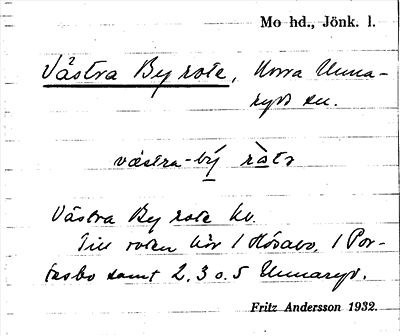 Mo hd., Jönk. l.
Västra By rote, Norra Unna-
ryds sn.
västra-bý
Västra By rote kv.
Till roten hör 1 Hösabo, 1 Por-
tasbo samt 2, 3 o. 5 Unnaryd.
Fritz Andersson 1932.